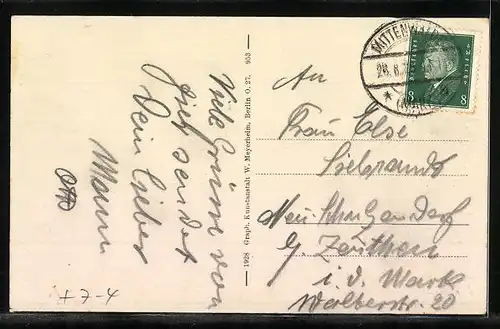 Viele Grüsse von
hier sendet
Dein lieber
Mann
Otto
+ 7-4
1928 Graph. Kunstanstalt W. Meyerheim, Berlin O. 27. 953
MITTENWALDE
28.8.
(MARK)
8 8
An
Frau Else
Siebrandt
Neu Schulzendorf
b/ Zeuthen
i. d. Mark
Walberstr. 20